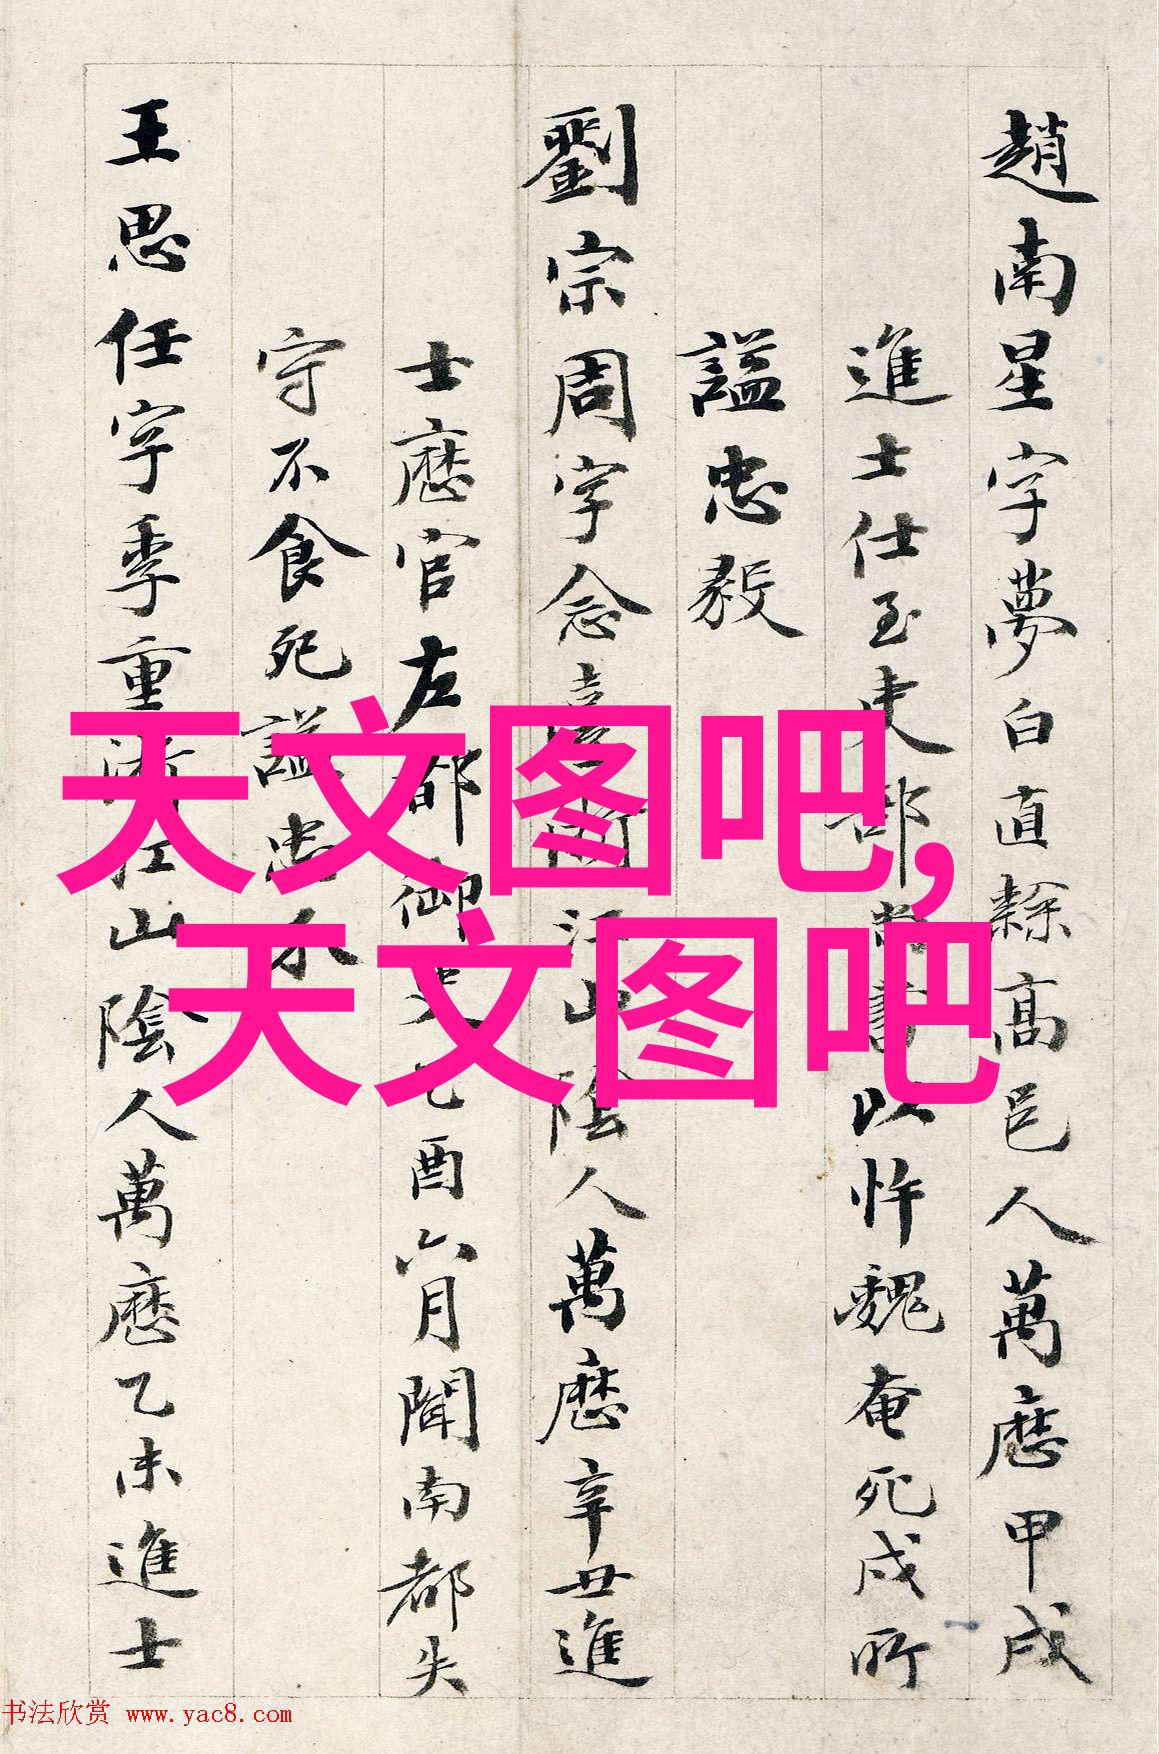 趙南星字夢白直隸高邑人萬曆甲戌
進士仕至吏部尚書以忤魏奄死戍所
諡忠毅
劉宗周字念江山陰人萬曆辛丑進
士歷官左都御史乙酉六月聞南都失
守不食死諡忠介
王思任字季重浙江山陰人萬曆乙未進士
天文图吧,
天文图吧
书法欣赏 www.yac8.com